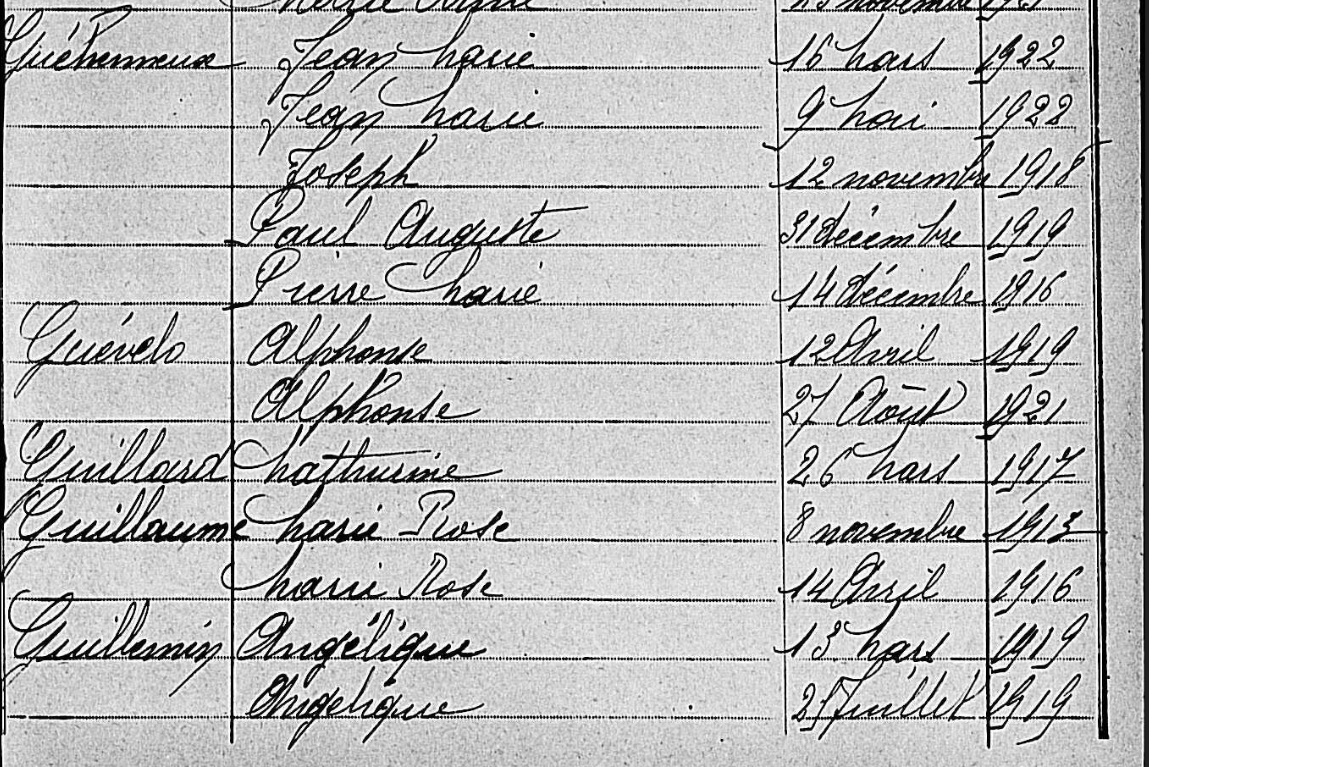 Marie 23 novembre 1921
Guéhenneux Jean Marie 16 Mars 1922
Jean Marie 9 Mai 1922
Joseph 12 novembre 1918
Paul Auguste 31 décembre 1919
Pierre Marie 14 décembre 1916
Guévelo Alphonse 12 Avril 1919
Alphonse 27 Août 1921
Guillard Mathurine 26 Mars 1917
Guillaume Marie Rose 8 novembre 1913
Marie Rose 14 Avril 1916
Guillemin Angélique 13 Mars 1919
Angelique 25 Juillet 1919